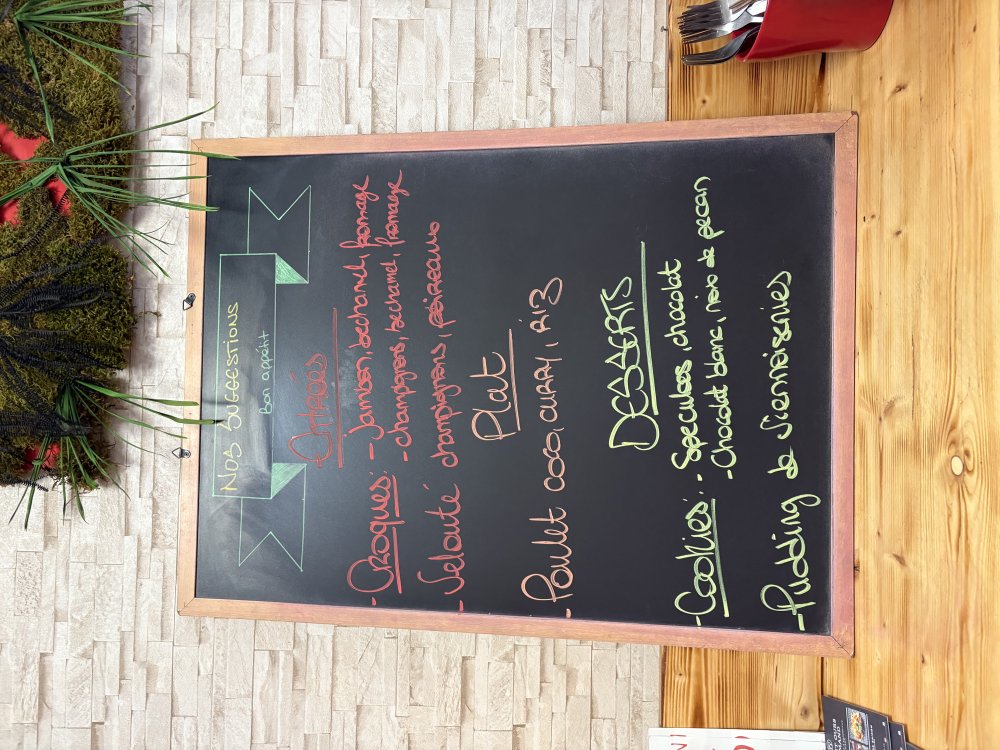 NOS SUGGESTIONS
Bon appétit
Entrées
- Croques: - Jambon, bechamel, fromage
- champignons, bechamel, fromage
- Velouté champignons, poireaux
Plat
- Poulet coco, curry, riz
DESSERTS
- Cookies: - Speculoos, chocolat
- Chocolat blanc, noix de pecan
- Pudding de viennoiseries